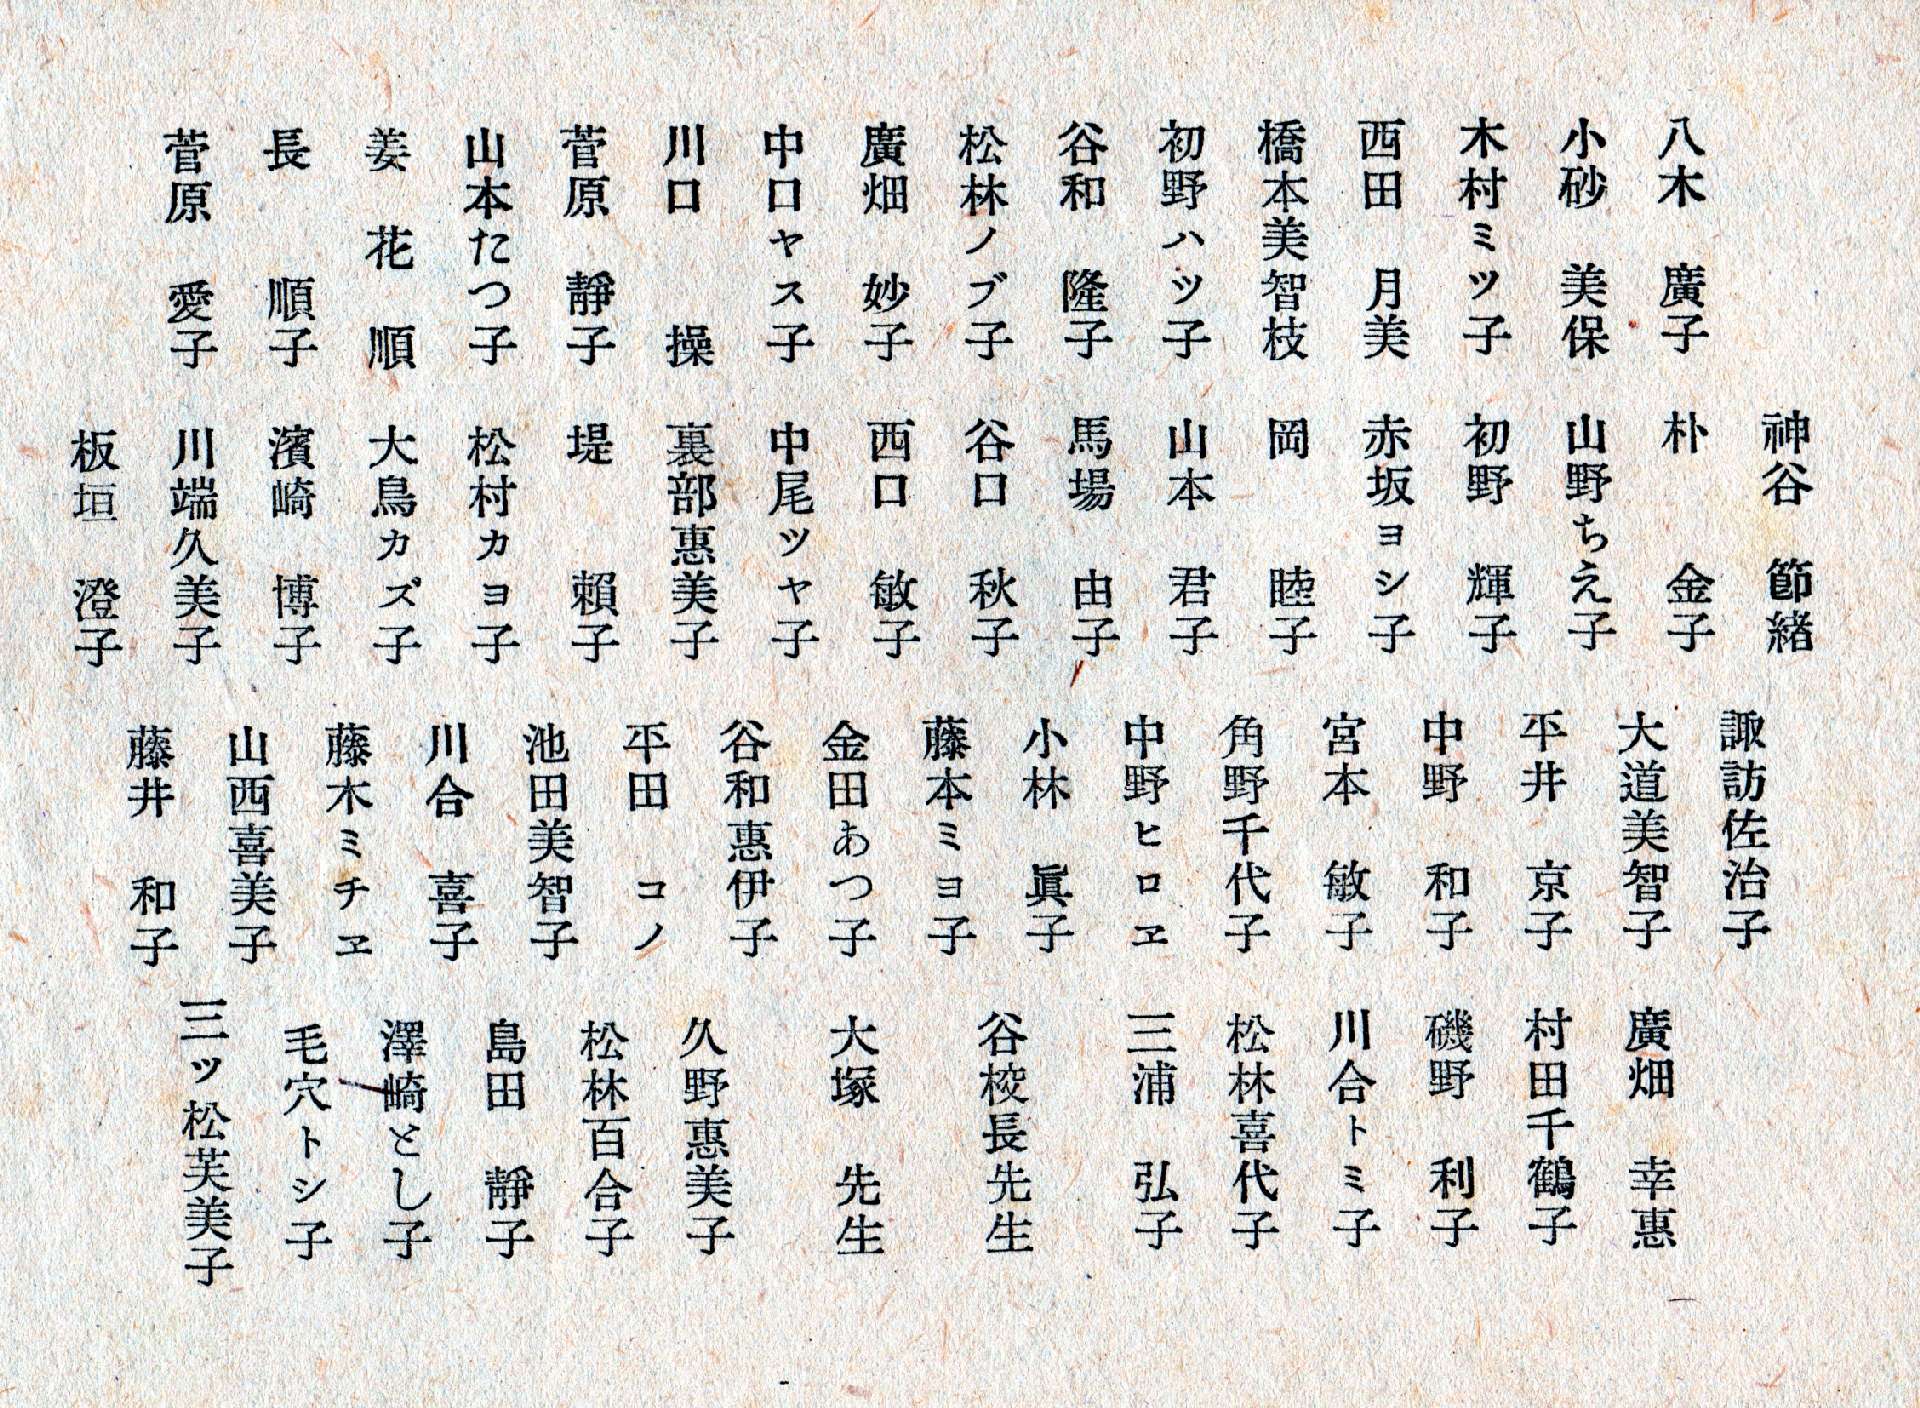 八木 廣子
小砂 美保
木村ミツ子
西田 月美
橋本美智枝
初野ハツ子
谷和 隆子
松林ノブ子
廣畑 妙子
中口ヤス子
川口 操
菅原 靜子
山本たつ子
姜 花 順
長 順子
菅原 愛子
神谷 節緒
朴 金子
山野ちえ子
初野 輝子
赤坂ヨシ子
岡 睦子
山本 君子
馬場 由子
谷口 秋子
西口 敏子
中尾ツヤ子
裏部惠美子
堤 賴子
松村カヨ子
大鳥カズ子
濱崎 博子
川端久美子
板垣 澄子
諏訪佐治子
大道美智子
平井 京子
中野 和子
宮本 敏子
角野千代子
中野ヒロヱ
小林 眞子
藤本ミヨ子
金田あつ子
谷和惠伊子
平田 コノ
池田美智子
川合 喜子
藤木ミチヱ
山西喜美子
藤井 和子
廣畑 幸惠
村田千鶴子
磯野 利子
川合トミ子
松林喜代子
三浦 弘子
谷校長先生
大塚 先生
久野惠美子
松林百合子
島田 靜子
澤崎とし子
毛穴トシ子
三ッ松芙美子